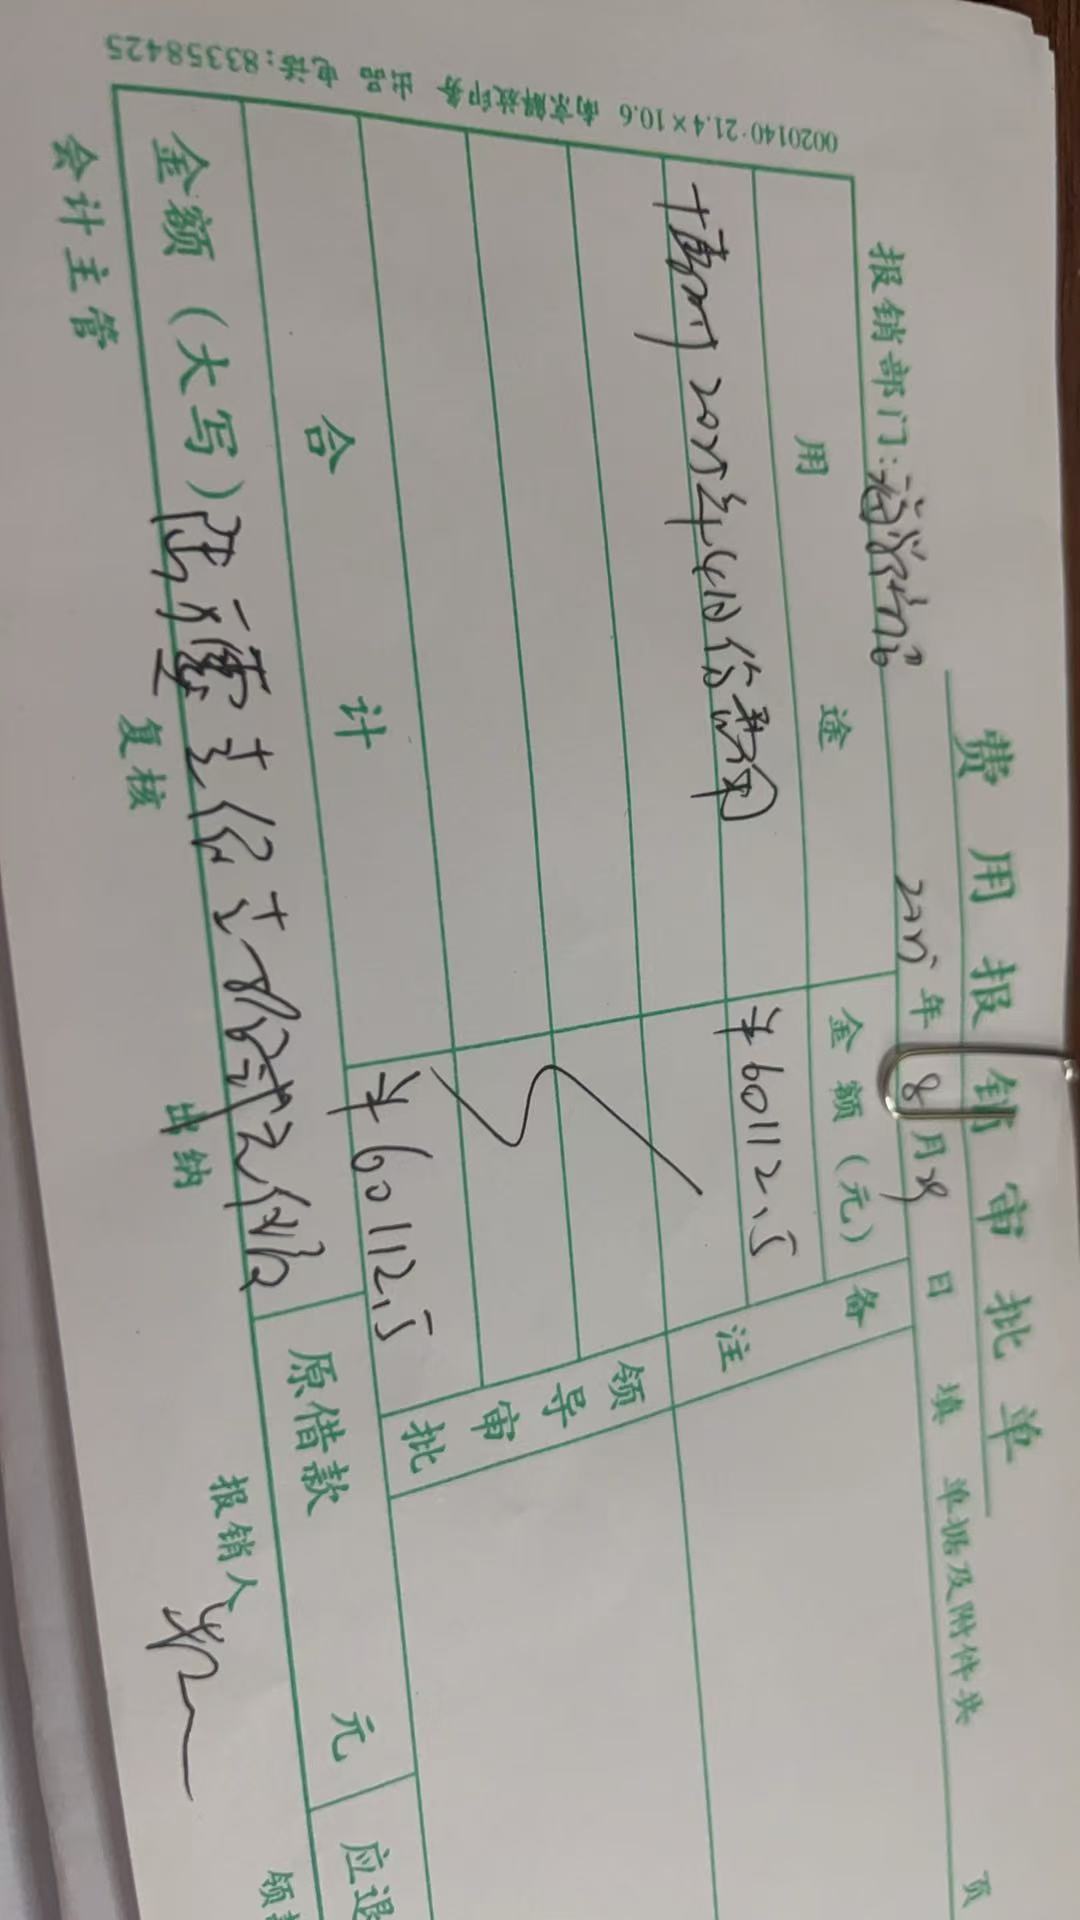 费用报销审批单
报销部门: 2025年8月28日填 单据及附件共 页
用途 金额(元) 备注
2025年4月份费用 ¥60112.5
领导审批
合计 ¥60112.5
金额(大写) 原借款 元 应退
会计主管 复核 出纳 报销人 领
0020140·21.4×10.6 南京解放印务 出品 电话:83358425